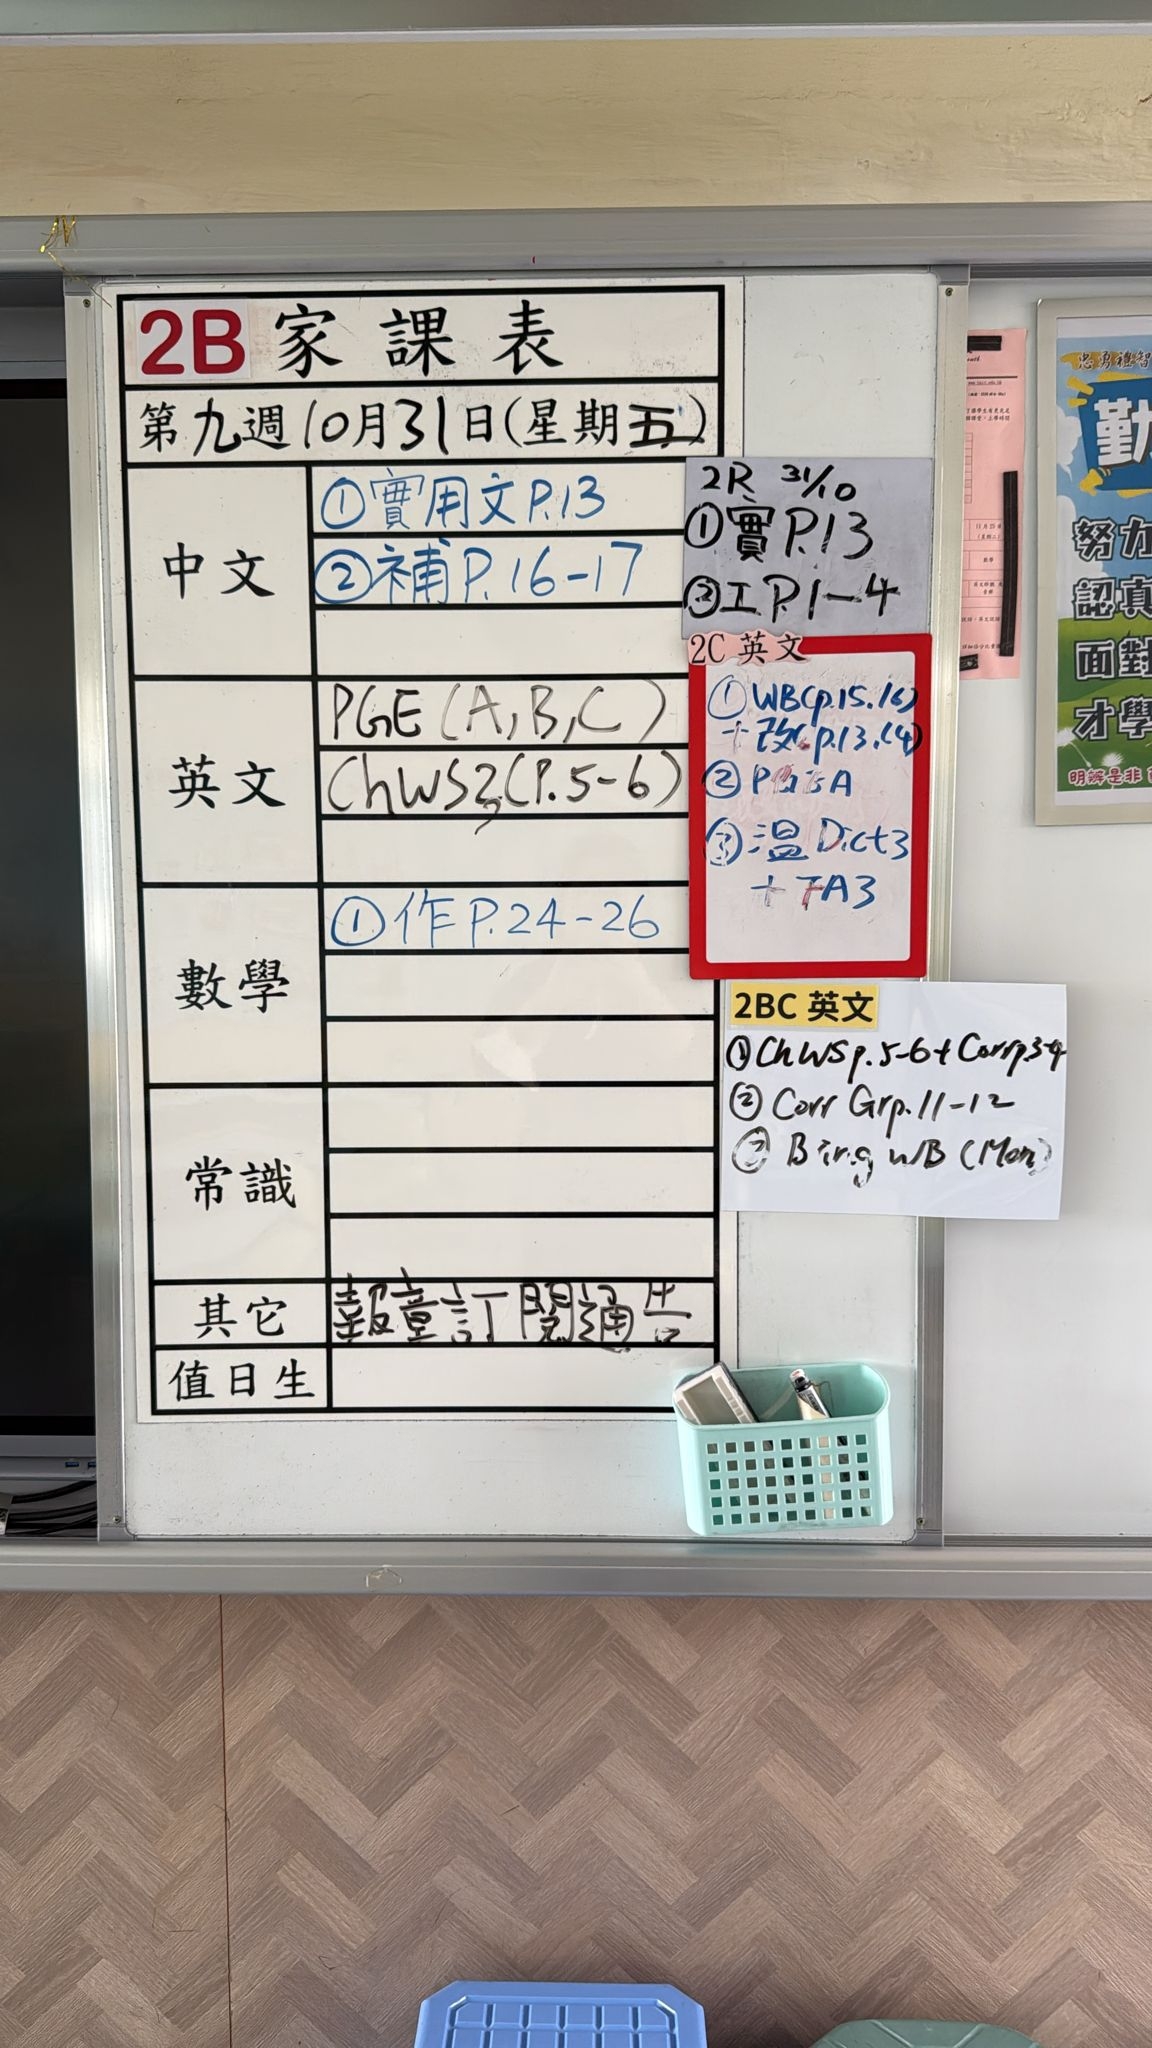 2B 家課表
第九週10月31日(星期五)
中文
①實用文P.13
②補P.16-17
英文
PGE(A,B,C)
ChWS2(P.5-6)
數學
①作P.24-26
常識
其它
報章訂閱通告
值日生
2R 31/10
①實P.13
②工P.1-4
2C 英文
①WB(p.15.16)
+改(p.13.14)
②PGEA
③溫Dict3
+TA3
2BC 英文
①ChWSp.5-6+Corrp.3-4
②Corr Grp.11-12
③Bring WB (Mon)
忠勇禮智
勤
努力
認真
面對
才學
明辨是非